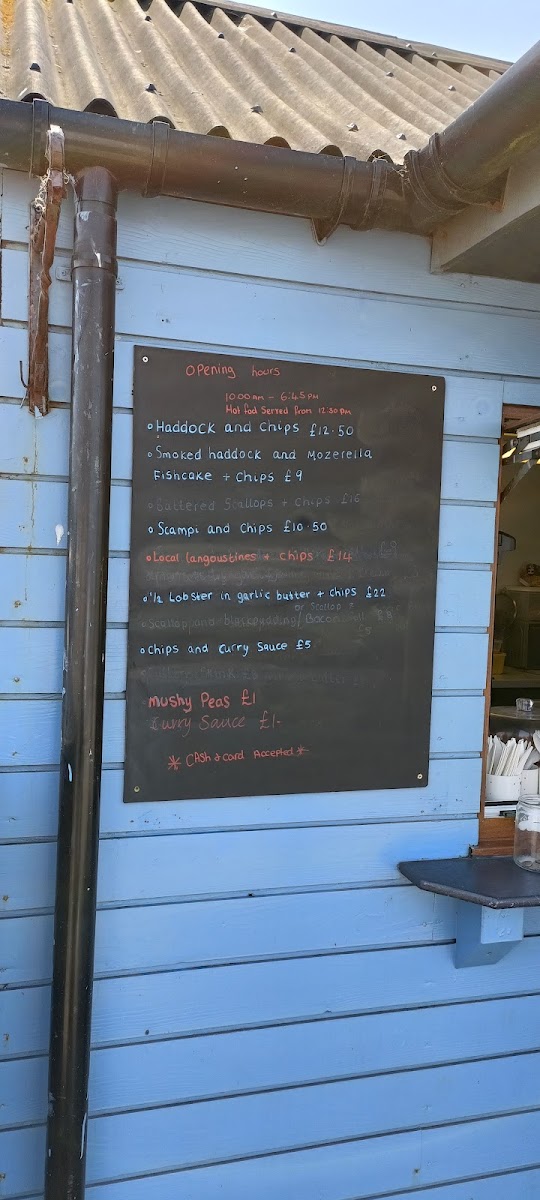 Opening hours
10:00 am - 6:45 PM
Hot food Served from 12:30 PM
Haddock and Chips £12.50
Smoked haddock and Mozerella
Fishcake + Chips £9
Battered Scallops + Chips £16
Scampi and Chips £10.50
Local langoustines + chips £14
½ Lobster in garlic butter + chips £22
or Scallop
Scallop and blackpudding / Bacon
Chips and Curry Sauce £5
Mushy Peas £1
Curry Sauce £1-
* CASh + Card Accepted *